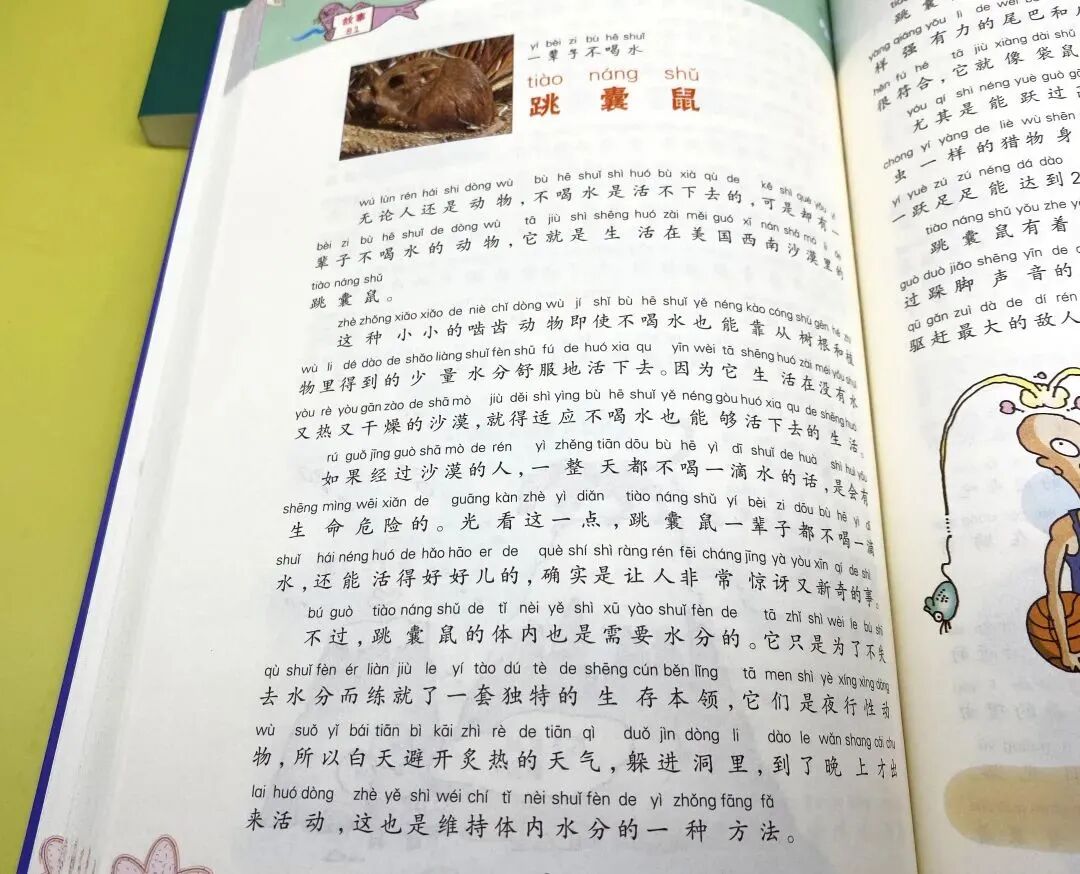 故事
81
yí bèi zi bù hē shuǐ
一辈子不喝水
tiào náng shǔ
跳囊鼠
wú lùn rén hái shi dòng wù bù hē shuǐ shì huó bù xià qù de kě shì què yǒu yí
无论人还是动物，不喝水是活不下去的，可是却有一
bèi zi bù hē shuǐ de dòng wù tā jiù shì shēng huó zài měi guó xī nán shā mò li de
辈子不喝水的动物，它就是生活在美国西南沙漠里的
tiào náng shǔ
跳囊鼠。
zhè zhǒng xiǎo xiǎo de niè chǐ dòng wù jí shǐ bù hē shuǐ yě néng kào cóng shù gēn hé zhí
这种小小的啮齿动物即使不喝水也能靠从树根和植
wù li dé dào de shǎo liàng shuǐ fèn shū fú de huó xia qu yīn wèi tā shēng huó zài méi yǒu shuǐ
物里得到的少量水分舒服地活下去。因为它生活在没有水
yòu rè yòu gān zào de shā mò jiù děi shì yìng bù hē shuǐ yě néng gòu huó xia qu de shēng huó
又热又干燥的沙漠，就得适应不喝水也能够活下去的生活。
rú guǒ jīng guò shā mò de rén yì zhěng tiān dōu bù hē yì dī shuǐ de huà shì huì yǒu
如果经过沙漠的人，一整天都不喝一滴水的话，是会有
shēng mìng wēi xiǎn de guāng kàn zhè yì diǎn tiào náng shǔ yí bèi zi dōu bù hē yì dī
生命危险的。光看这一点，跳囊鼠一辈子都不喝一滴
shuǐ hái néng huó de hǎo hāo er de què shí shì ràng rén fēi cháng jīng yà yòu xīn qí de shì
水，还能活得好好儿的，确实是让人非常惊讶又新奇的事。
bú guò tiào náng shǔ de tǐ nèi yě shì xū yào shuǐ fèn de tā zhǐ shì wèi le bù shī
不过，跳囊鼠的体内也是需要水分的。它只是为了不失
qù shuǐ fèn ér liàn jiù le yí tào dú tè de shēng cún běn lǐng tā men shì yè xíng xìng dòng
去水分而练就了一套独特的生存本领，它们是夜行性动
wù suǒ yǐ bái tiān bì kāi zhì rè de tiān qì duǒ jìn dòng li dào le wǎn shang cái chū
物，所以白天避开炙热的天气，躲进洞里，到了晚上才出
lai huó dòng zhè yě shì wéi chí tǐ nèi shuǐ fèn de yì zhǒng fāng fǎ
来活动，这也是维持体内水分的一种方法。
tiào náng shǔ de wěi
跳囊
yàng qiáng yǒu lì de wěi ba hé
样强有力的尾巴和
hěn fú hé tā jiù xiàng dài shǔ
很符合，它就像袋鼠
yóu qí shì néng yuè guò
尤其是能跃过
chóng yí yàng de liè wù shēn
虫一样的猎物身
yí yuè zú zú néng dá dào
一跃足足能达到2
tiào náng shǔ yǒu zhe
跳囊鼠有着
guò duò jiǎo shēng yīn de
过跺脚声音的
qū gǎn zuì dà de dí rén
驱赶最大的敌人